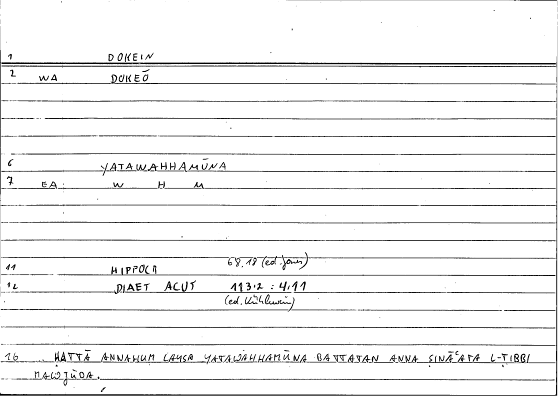 1 DOKEIN
2 WA DOKEŌ
6 YATAWAHHAMŪNA
7 EA: W H M
11 HIPPOCR 68.18 (ed. Jones)
12 DIAET ACUT 113.2 : 4.11
(ed. Kühlewein)
16 HATTĀ ANNAHUM LAYSA YATAWAHHAMŪNA BATTATAN ANNA ṢINĀʿATA L-ṬIBBI
MAWǦŪDA.